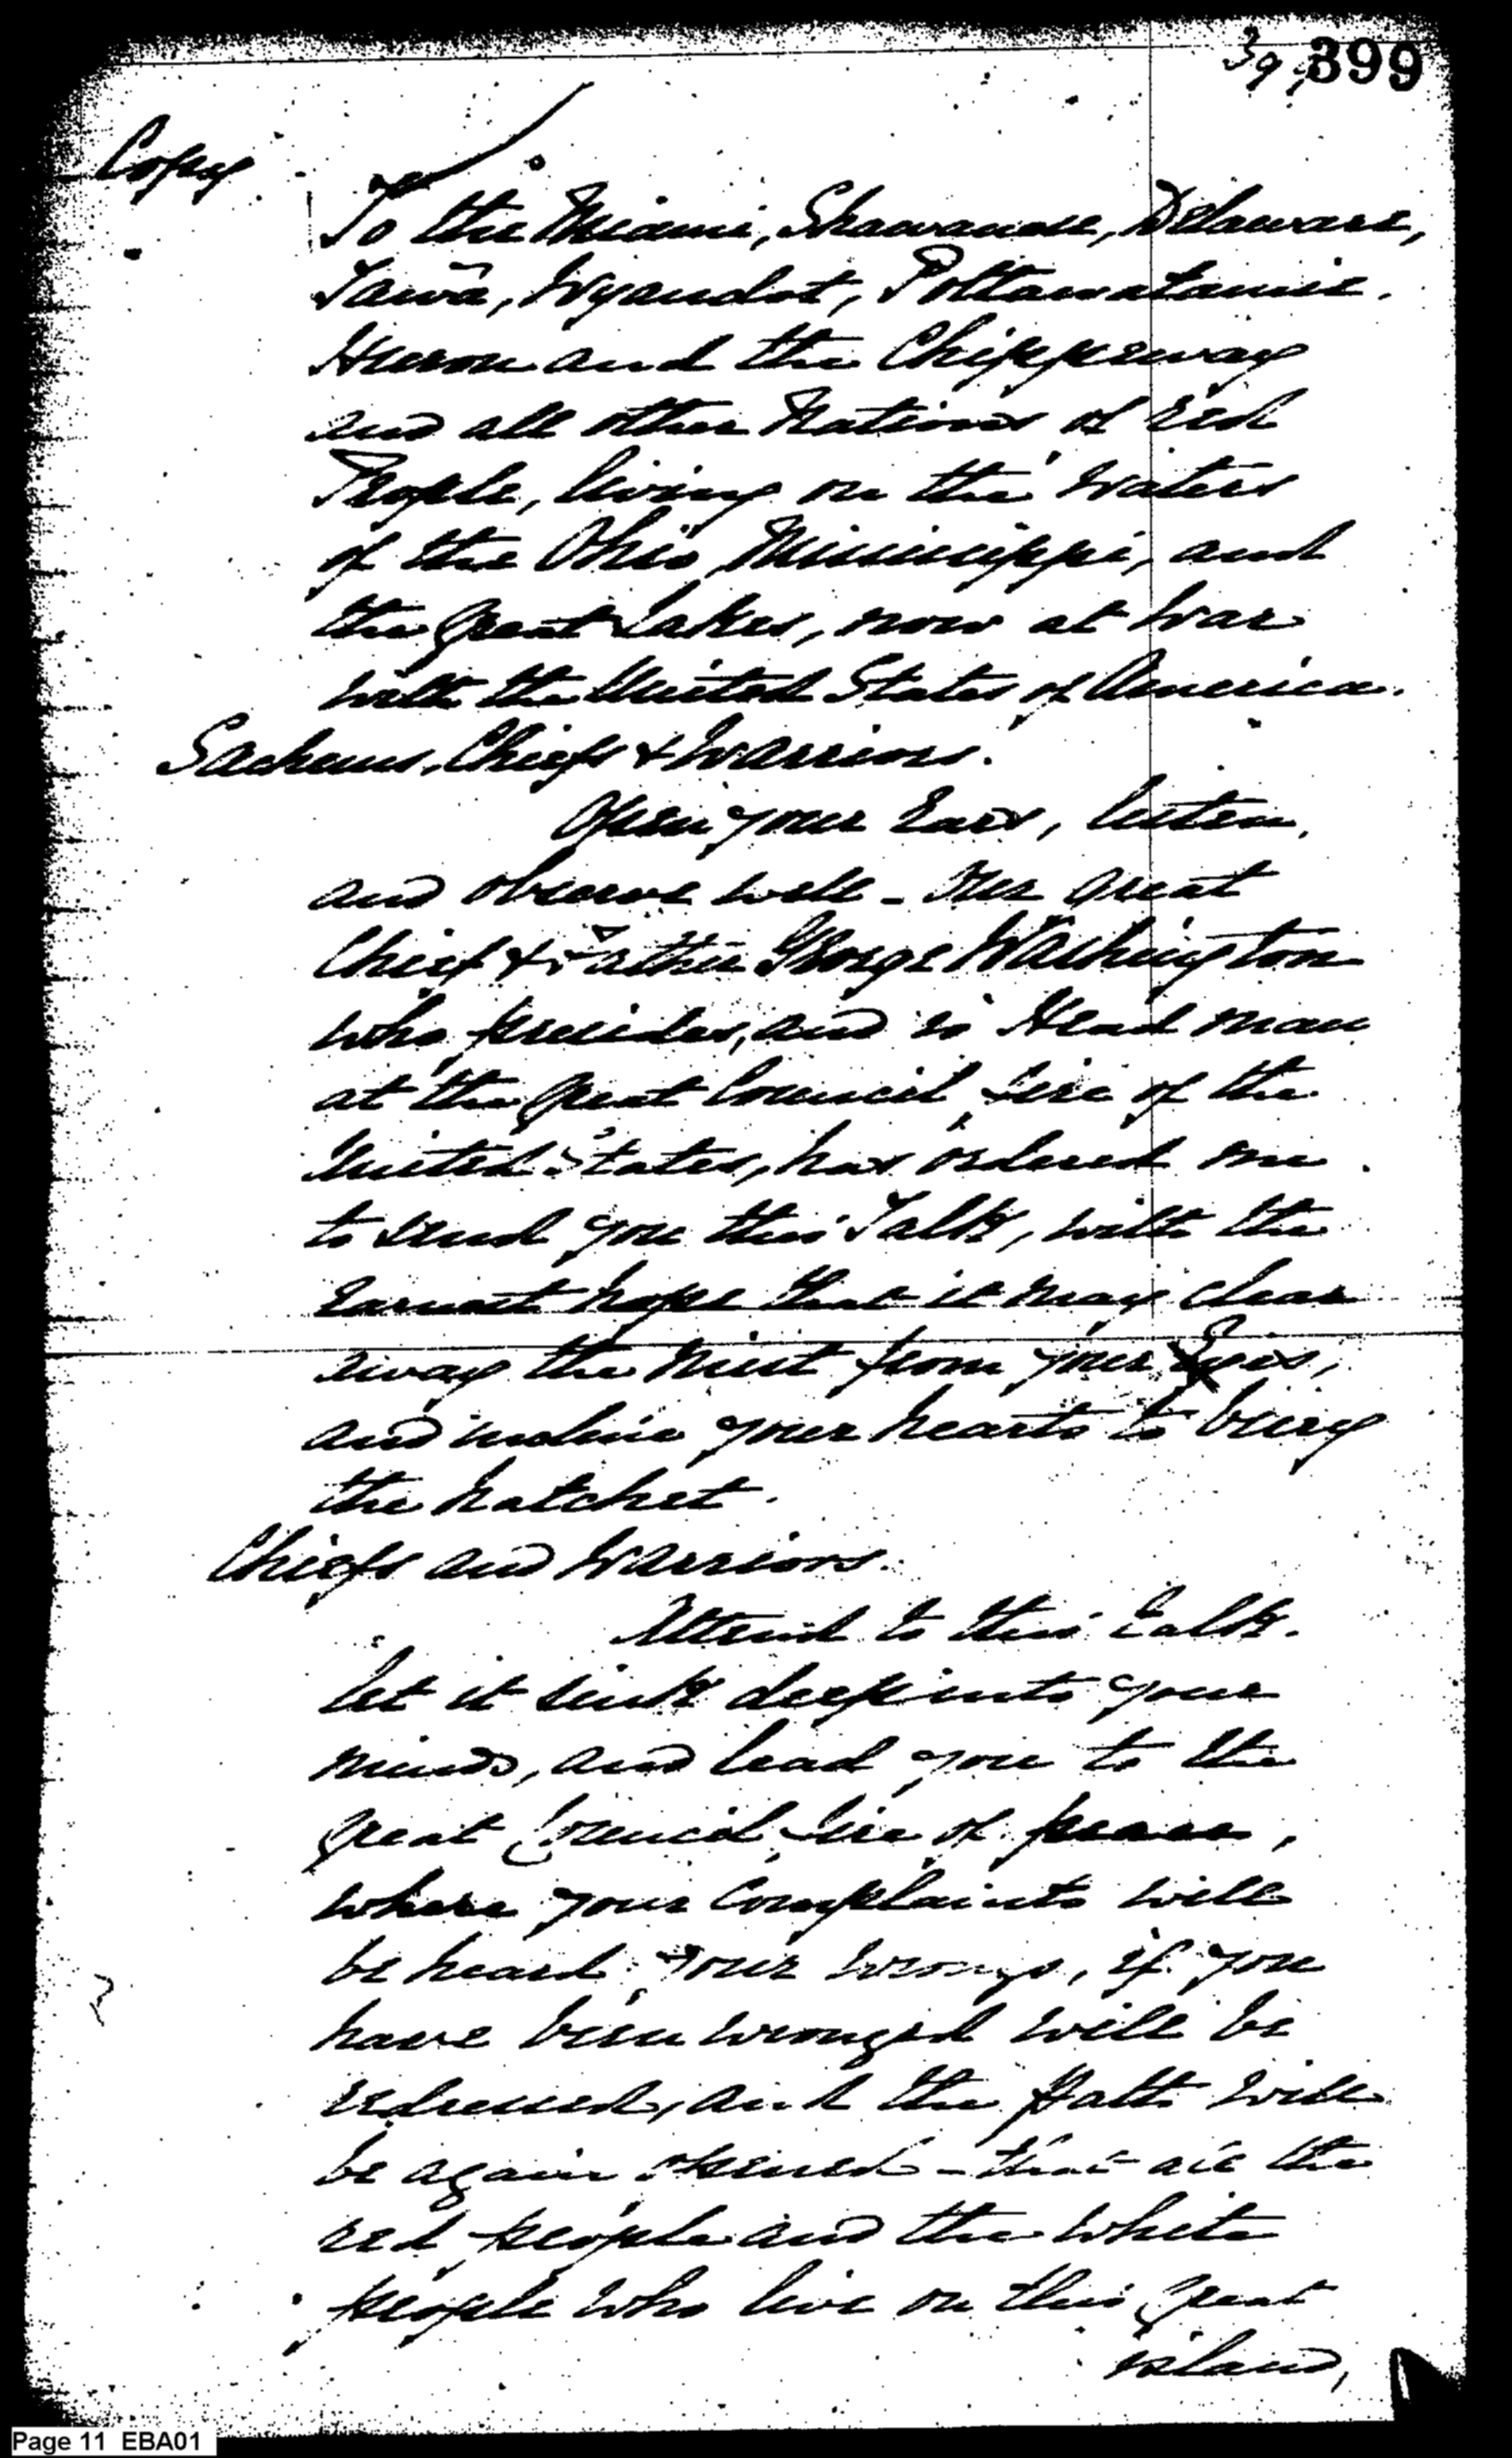 399
Copy
To the Miami, Shawanoe, Delaware,
Tawa, Wyandot, Pottawatamie.
Huron and the Chippeway
and all other Nations of red
People, living on the Waters
of the Ohio, Mississippi, and
the Great Lakes, now at War
with the United States of America.
Sachems, Chiefs & Warriors.
Open your Ears, listen,
and observe well - Our great
Chief & Father George Washington
who presides, and is Head man
at the Great Council fire of the
United States, has ordered me
to send you this Talk, with the
earnest hope that it may clear
away the mist from your Eyes,
and incline your hearts to bury
the hatchet.
Chiefs and Warriors.
Attend to this talk.
let it sink deep into your
minds, and lead you to the
Great Council fire of peace,
where your Complaints will
be heard. Your wrongs, if you
have been wronged will be
redressed, and the path will
be again opened - that all the
red people and the white
people who live on this great
island,
Page 11 EBA01